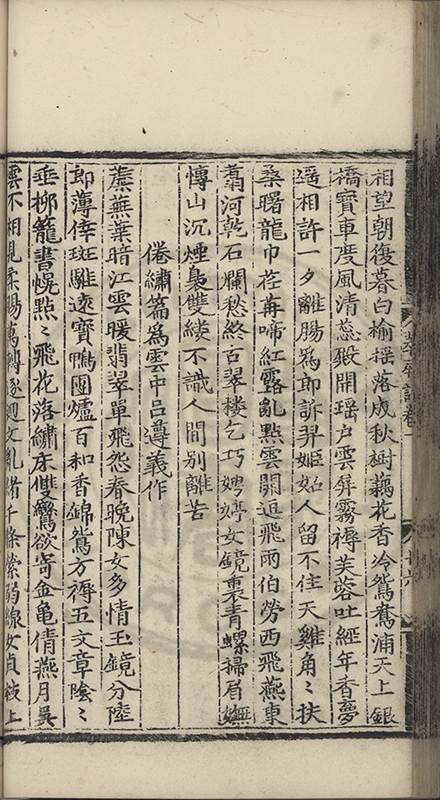 相望朝復暮白榆搖落成秋樹藕花香冷鴛鴦浦天上銀
橋寳車度風清蕊殿開瑶户雲屏霧褥芙蓉吐經年香夢
遥相許一夕離腸為郎訴羿姬妬人留不住天雞角〻扶
桑曙龍巾荏苒啼紅露亂點雲開逗飛雨伯勞西飛燕東
翥河乾石爛愁終古翠樓乞巧娉婷女鏡裏青螺掃眉嫵
愽山沉煙裊雙縷不識人間别離苦
倦繡篇為雲中吕遵義作
蘪蕪葉暗江雲暖翡翠單飛怨春晚陳女多情玉鏡分陸
郎薄倖斑騅逺寳鴨團爐百和香錦鴛方褥五文章陰〻
垂柳籠書幌點〻飛花落繡床雙鸞欲寄金龜倩燕月吳
雲不相見柔腸萬轉逐迴文亂緒千條縈弱線女貞枝上